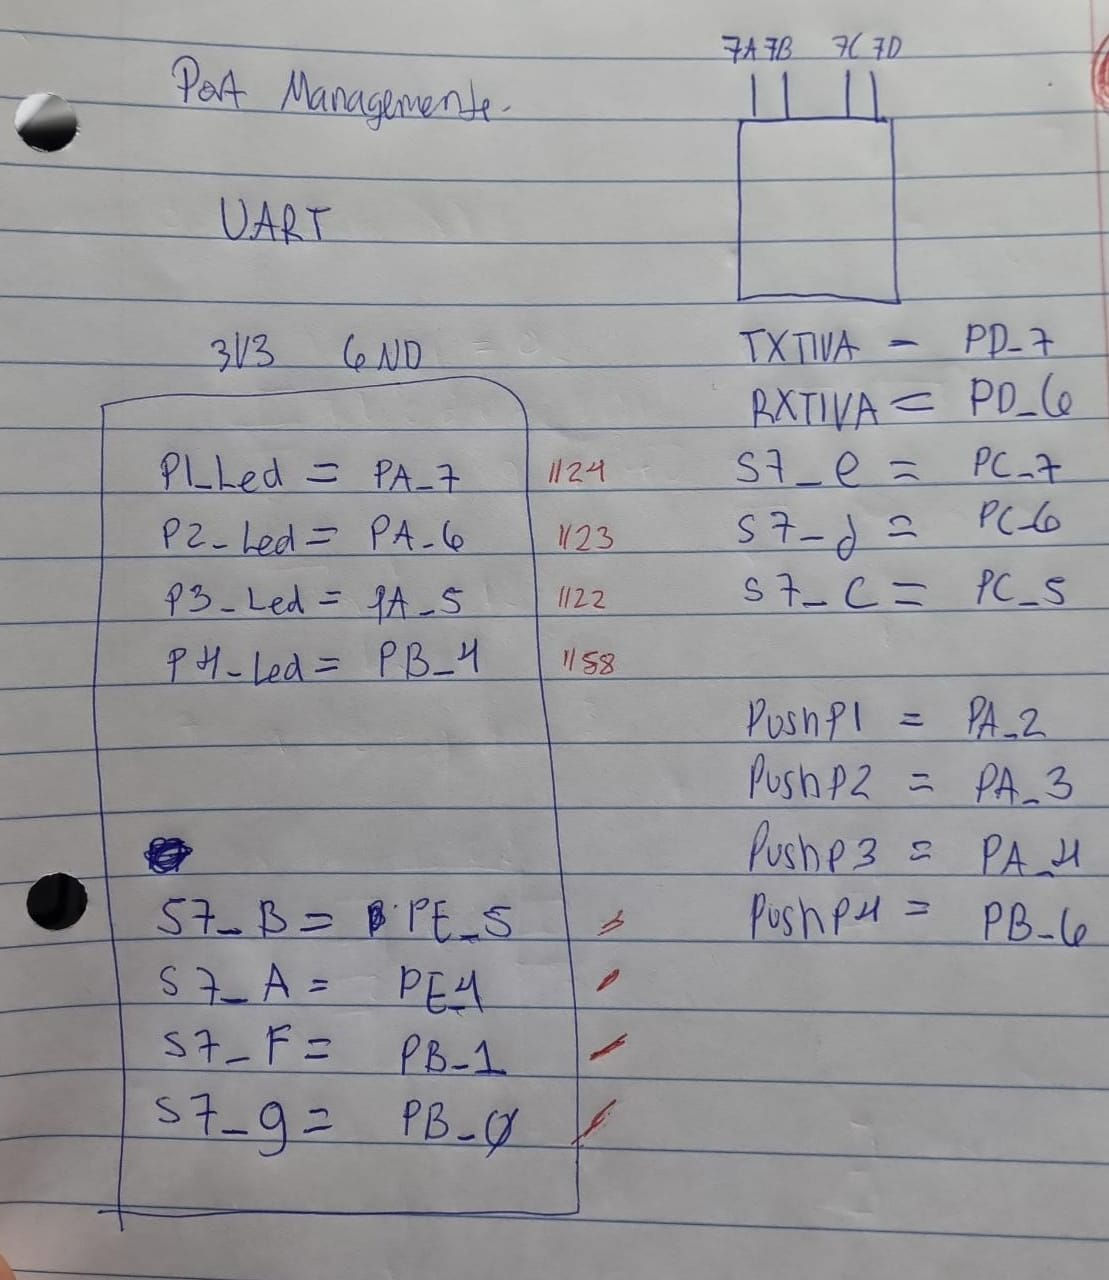 7A 7B 7C 7D
Port Managemente.
UART
3V3 GND
P1_Led = PA_7 1124
P2_Led = PA_6 1123
P3_Led = PA_5 1122
P4_Led = PB_4 1158
S7_B = PE_5
S7_A = PE_4
S7_F = PB_1
S7_g = PB_0
TXTIVA - PD_7
RXTIVA = PD_6
S7_e = PC_7
S7_d = PC_6
S7_C = PC_5
PushP1 = PA_2
PushP2 = PA_3
PushP3 = PA_4
PushP4 = PB_6